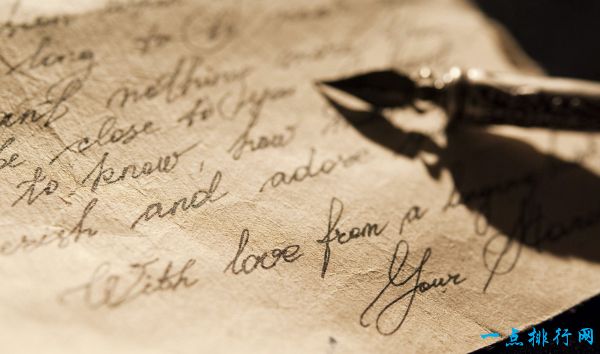 long to
want nothing more
be close to you
to know, how
cherish and adore
With love from a
Your
一点排行网